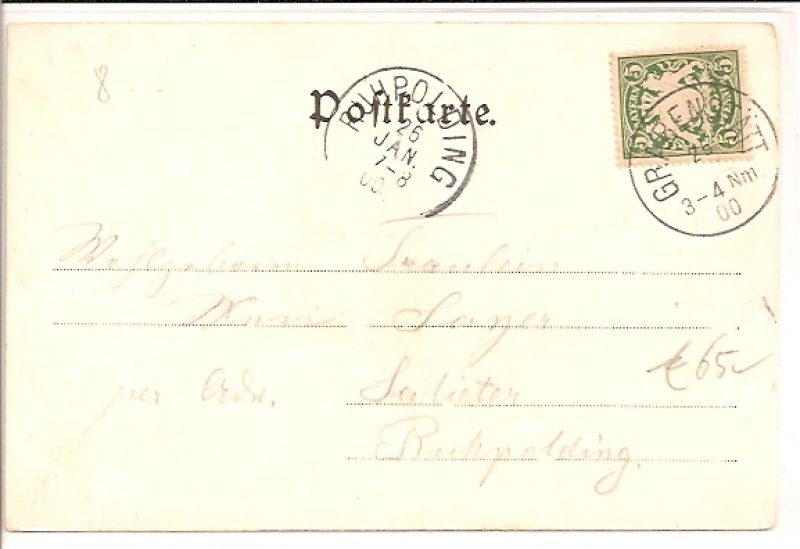 8
Postkarte.
RUHPOLDING
26
JAN.
7-8
00.
5 BAYERN 5
5 5
GRABENSTÄTT
3-4 Nm.
00
Wohlgeboren Fräulein
Mari
per Adr.
Ruhpolding.
€ 65